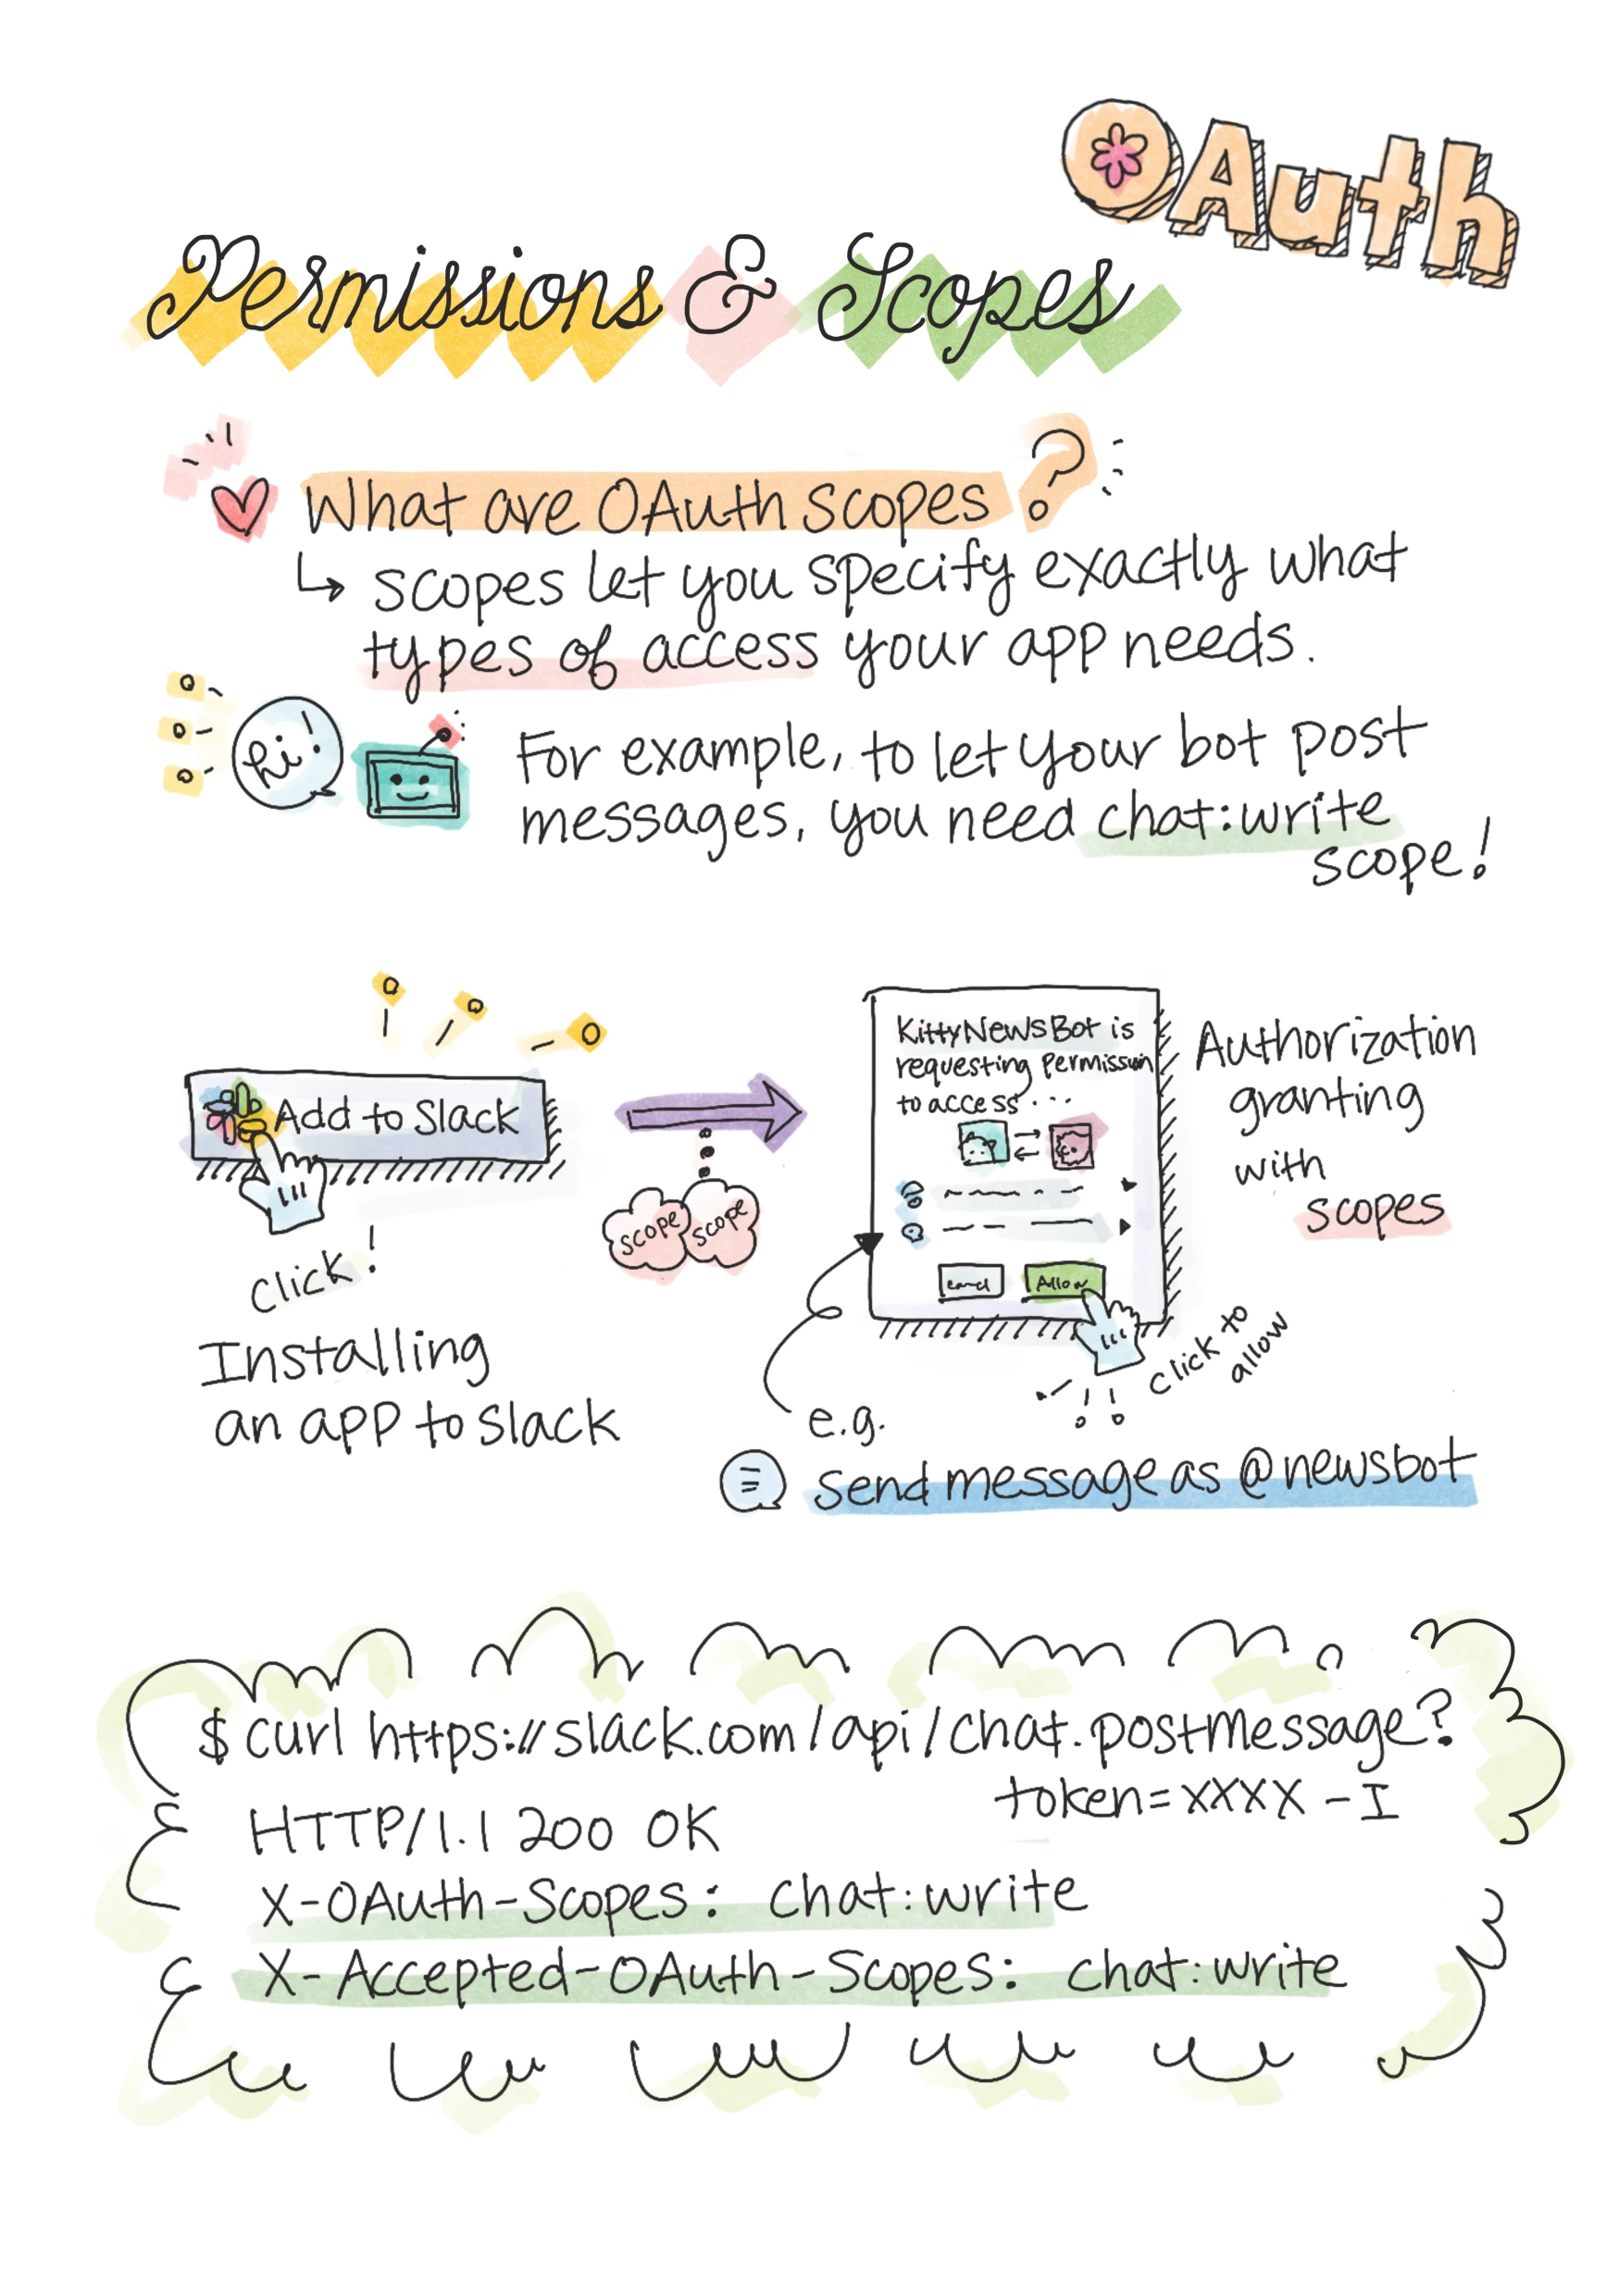 OAuth
Permissions & Scopes
What are OAuth scopes?
scopes let you specify exactly what
types of access your app needs.
hi!
For example, to let your bot post
messages, you need chat:write
scope!
Add to Slack
click!
Installing
an app to Slack
scope scope
KittyNewsBot is
requesting permission
to access...
Cancel Allow
Authorization
granting
with
scopes
click to
allow
e.g.
send message as @newsbot
$ curl https://slack.com/api/chat.postMessage?
token=XXXX-I
HTTP/1.1 200 OK
X-OAuth-Scopes: chat:write
X-Accepted-OAuth-Scopes: chat:write